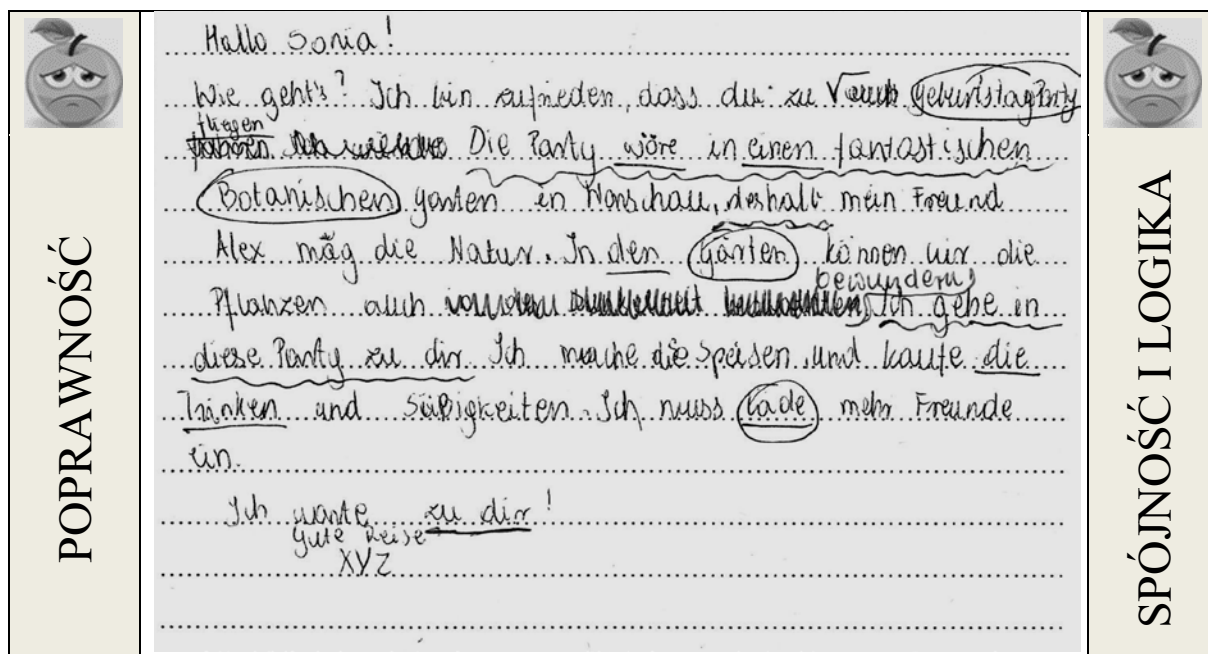 POPRAWNOŚĆ
Hallo Sonia!
Wie geht's? Ich bin zufrieden, dass du zu GeburtstagParty
fliegen
Die Party wöre in einen fantastischen
Botanischen garten in Warschau, deshalb mein Freund
Alex mag die Natur. In den Gärten können wir die
bewundern
Pflanzen auch Ich gehe in
diese Party zu dir. Ich mache die Speisen und kaufe die
Tränken und Süßigkeiten. Ich muss lade mehr Freunde
ein.
Ich warte zu dir!
Gute Reise
XYZ
SPÓJNOŚĆ I LOGIKA